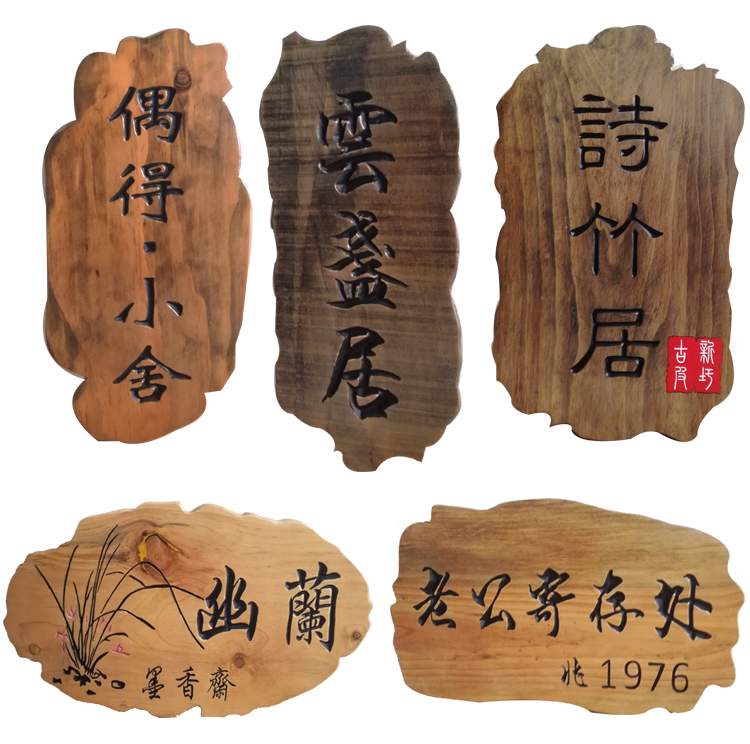 偶得·小舍
雲盞居
詩竹居
幽蘭
墨香齋
老公寄存处
1976